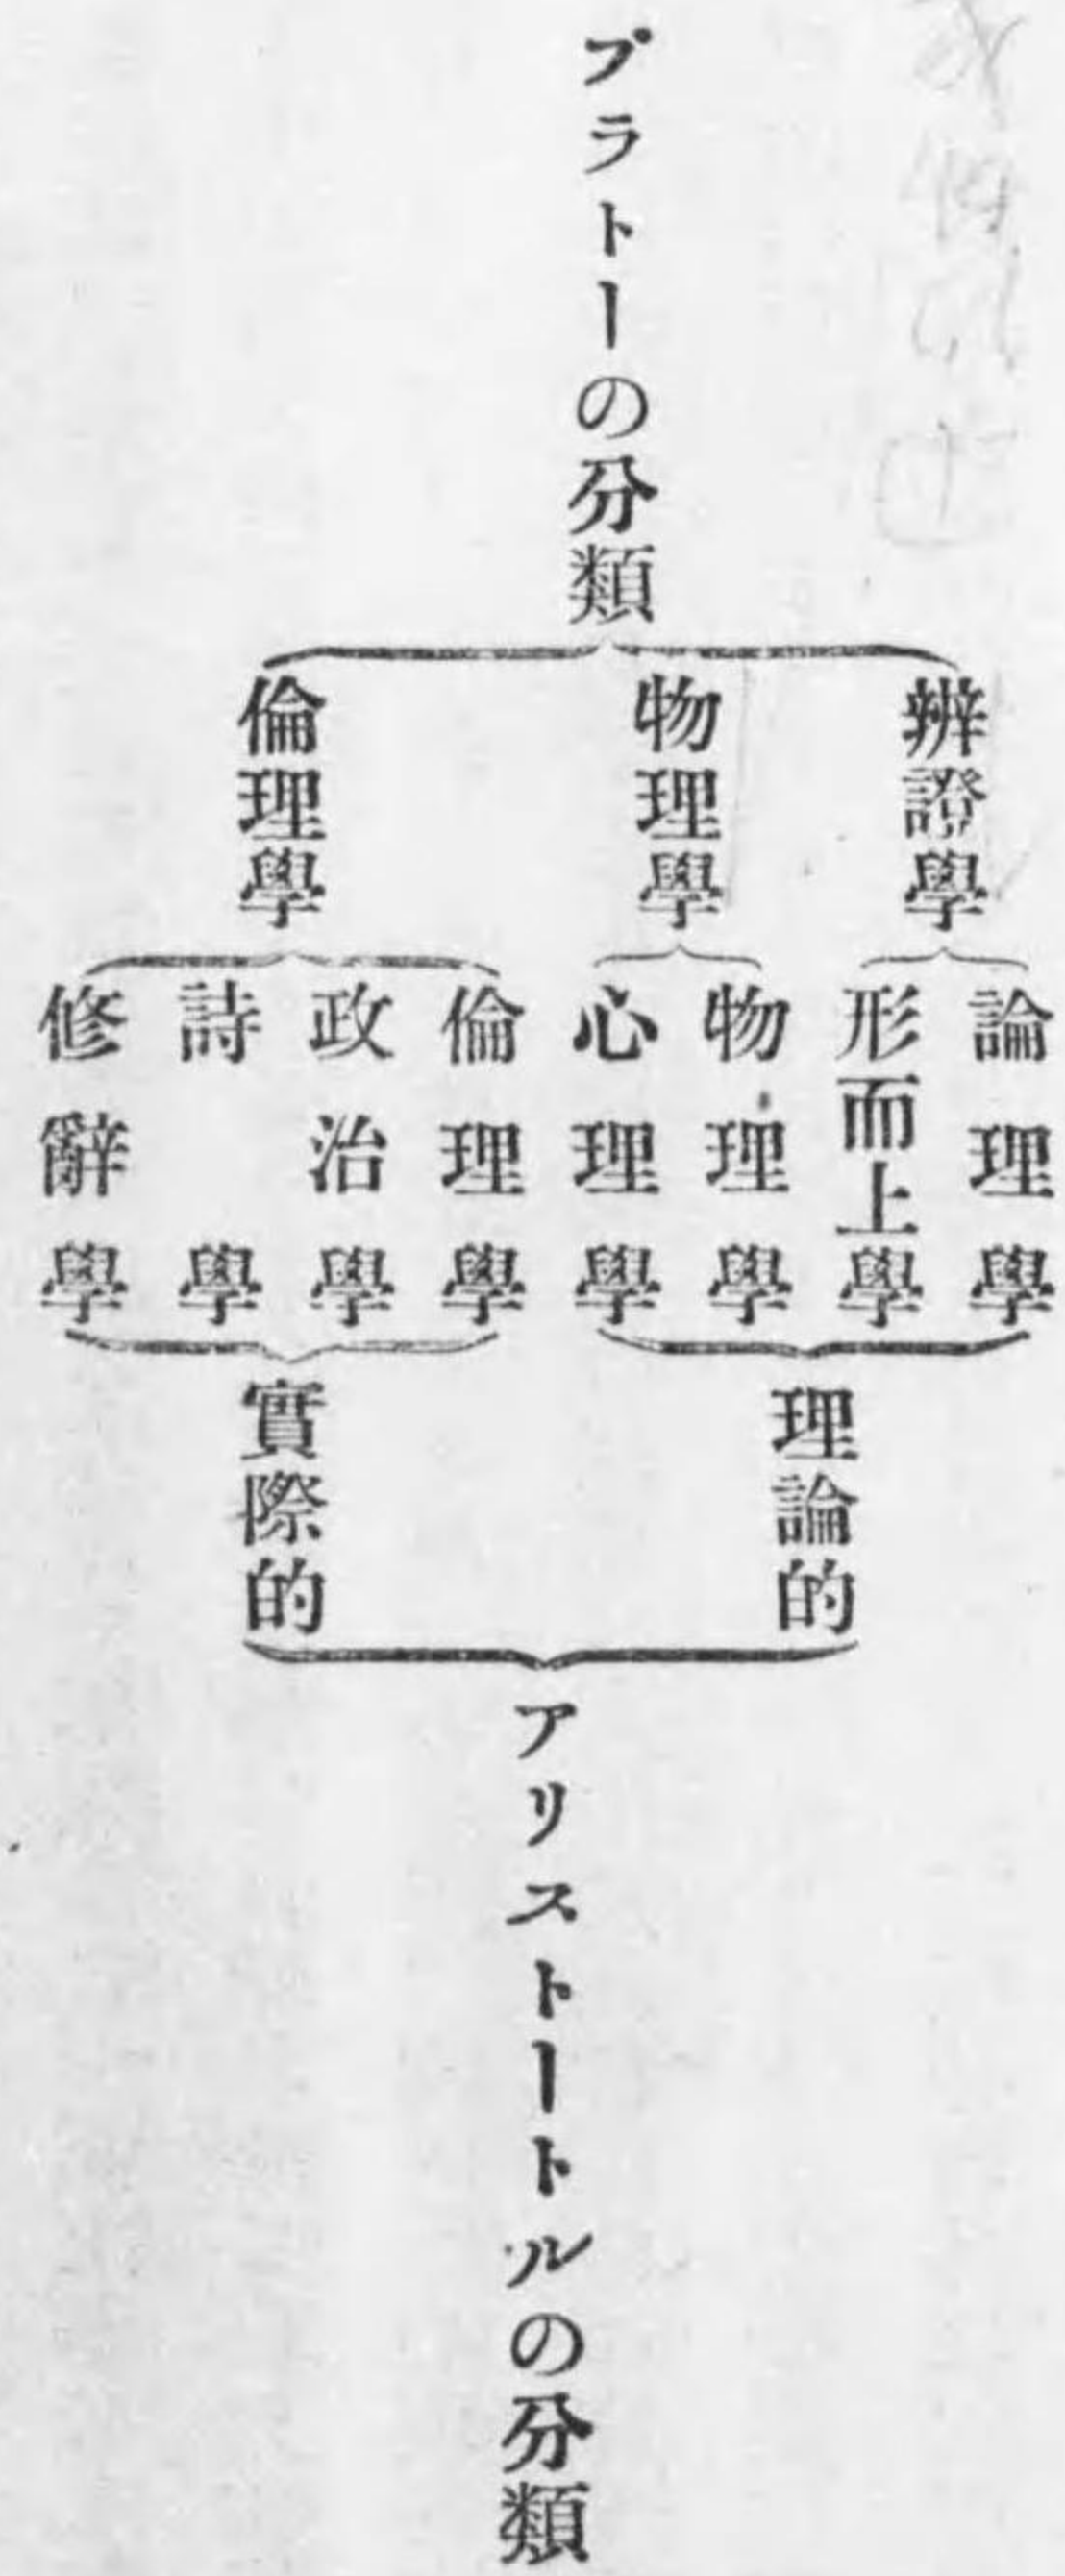 プラトーの分類
辨證學
物理學
倫理學
論理學
形而上學
物理學
心理學
倫理學
政治學
詩學
修辭學
理論的
實際的
アリストートルの分類